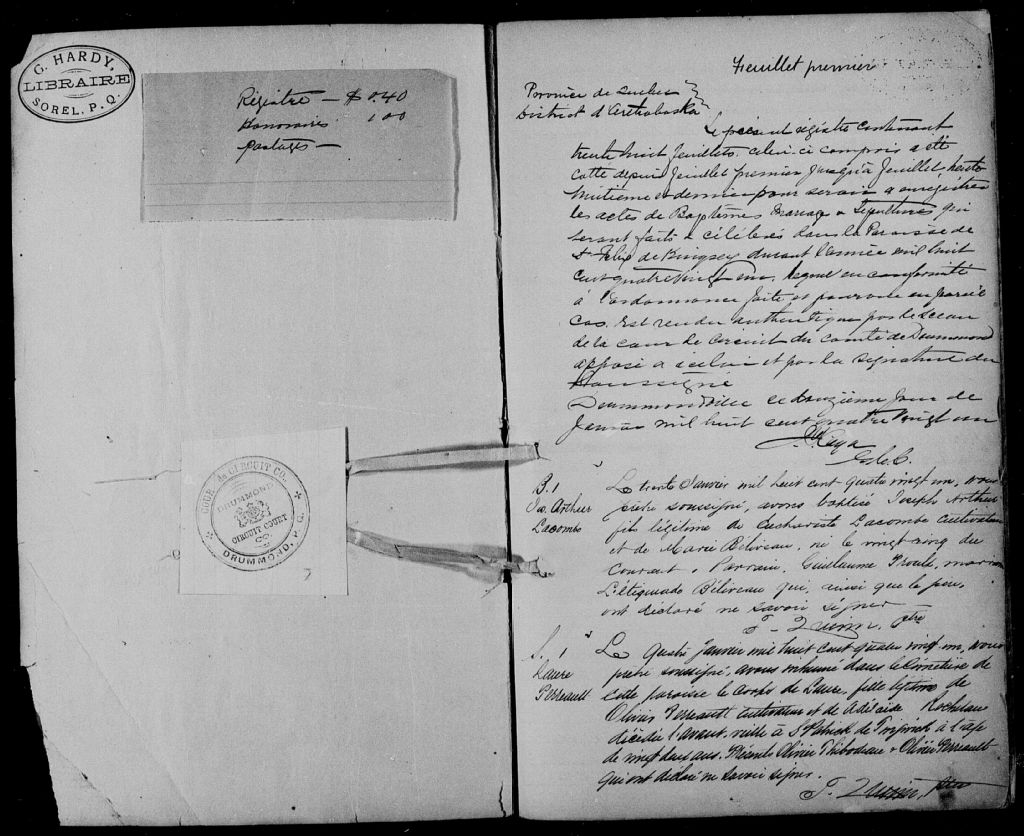 G. HARDY,
LIBRAIRE
SOREL, P. Q.
Registre — $0.40
Honoraires 1 00
postages —
COUR de CIRCUIT CO.
DRUMMOND
CIRCUIT COURT
CO
DRUMMOND, P. Q.
Feuillet premier
Province de Quebec
District d'Arthabaska
Le présent régistre contenant
trente huit feuillets celui-ci compris a été
cotté depuis feuillet premier jusqu'à feuillet trente
huitième et dernier pour servir a enregistrer
les actes de Baptêmes Mariage & Sepultures qui
seront faits & célébrés dans la Paroisse de
St Felix de Kingsey durant l'année mil huit
cent quatre vingt un. Lequel en conformité
à l'ordonnance faite et pourvue en pareil
cas, Est rendu authentique par le Sceau
de la cour de Circuit du comté de Drummond
apposé a icelui et par la signature du
Soussigné
Drummondville ce douzième jour de
Janvier mil huit cent quatre vingt un
B. 1
Jos. Arthur
Lacombe
Le trente Janvier mil huit cent quatre vingt un, nous
prêtre soussigné, avons baptisé Joseph Arthur
fils légitime de Euchariste Lacombe cultivateur
et de Marie Béliveau, né le vingt cinq du
courant. Parrain, Guillaume Proulx, marraine
Béliveau qui, ainsi que le père,
ont déclaré ne savoir signer
P. Quinn, Ptre
S. 1
Laure
Perreault
Le Quatre Janvier mil huit cent quatre vingt un, nous
prêtre soussigné, avons inhumé dans le Cimetière de
cette paroisse le corps de Laure, fille légitime de
Olivier Perreault cultivateur et de Adélaide Rocheleau
décédée l'avant veille à St Patrick de Tingwick à l'age
de vingt deux ans. Présents Olivier Thibodeau & Olivier Perreault
qui ont déclaré ne savoir signer.
P. Quinn, ptre